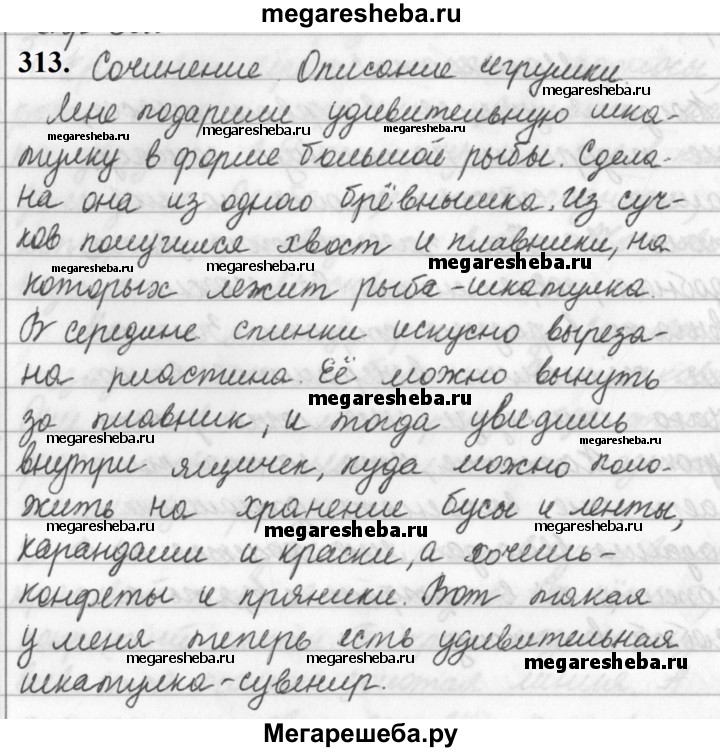 megaresheba.ru
313. Сочинение. Описание игрушки.
megaresheba.ru
Мне подарили удивительную шка-
megaresheba.ru megaresheba.ru megaresheba.ru megaresheba.ru
тулку в форме большой рыбы. Сдела-
на она из одного брёвнышка. Из суч-
ков получился хвост и плавники, на
megaresheba.ru megaresheba.ru megaresheba.ru
которых лежит рыба-шкатулка.
В середине спинки искусно выреза-
на пластина. Её можно вынуть
megaresheba.ru
за плавник, и тогда увидишь
megaresheba.ru megaresheba.ru
внутри ящичек, куда можно поло-
жить на хранение бусы и ленты,
megaresheba.ru megaresheba.ru megaresheba.ru
карандаши и краски, а хочешь-
конфеты и пряники. Вот такая
у меня теперь есть удивительная
megaresheba.ru megaresheba.ru megaresheba.ru
шкатулка-сувенир.
Мегарешеба.ру